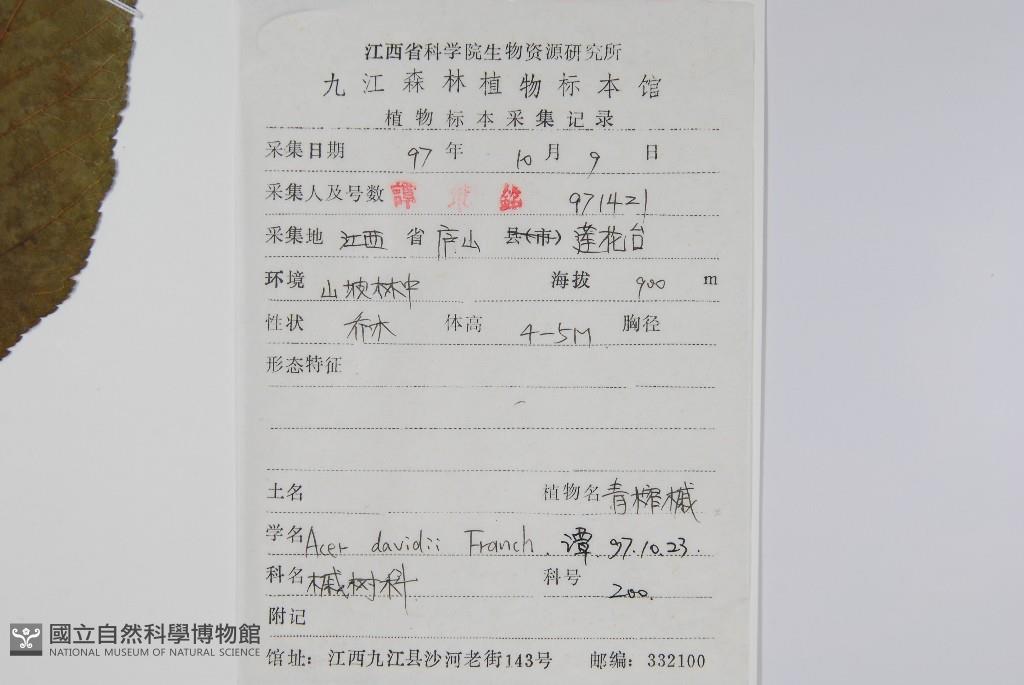 江西省科学院生物资源研究所
九江森林植物标本馆
植物标本采集记录
采集日期 97 年 10 月 9 日
采集人及号数 譚 銘 971421
采集地 江西 省 庐山 县(市) 莲花台
环境 山坡林中 海拔 900 m
性状 乔木 体高 4-5M 胸径
形态特征
土名 植物名 青榨槭
学名 Acer davidii Franch. 谭 97.10.23.
科名 槭树科 科号 200.
附记
馆址: 江西九江县沙河老街143号 邮编: 332100
國立自然科學博物館
NATIONAL MUSEUM OF NATURAL SCIENCE